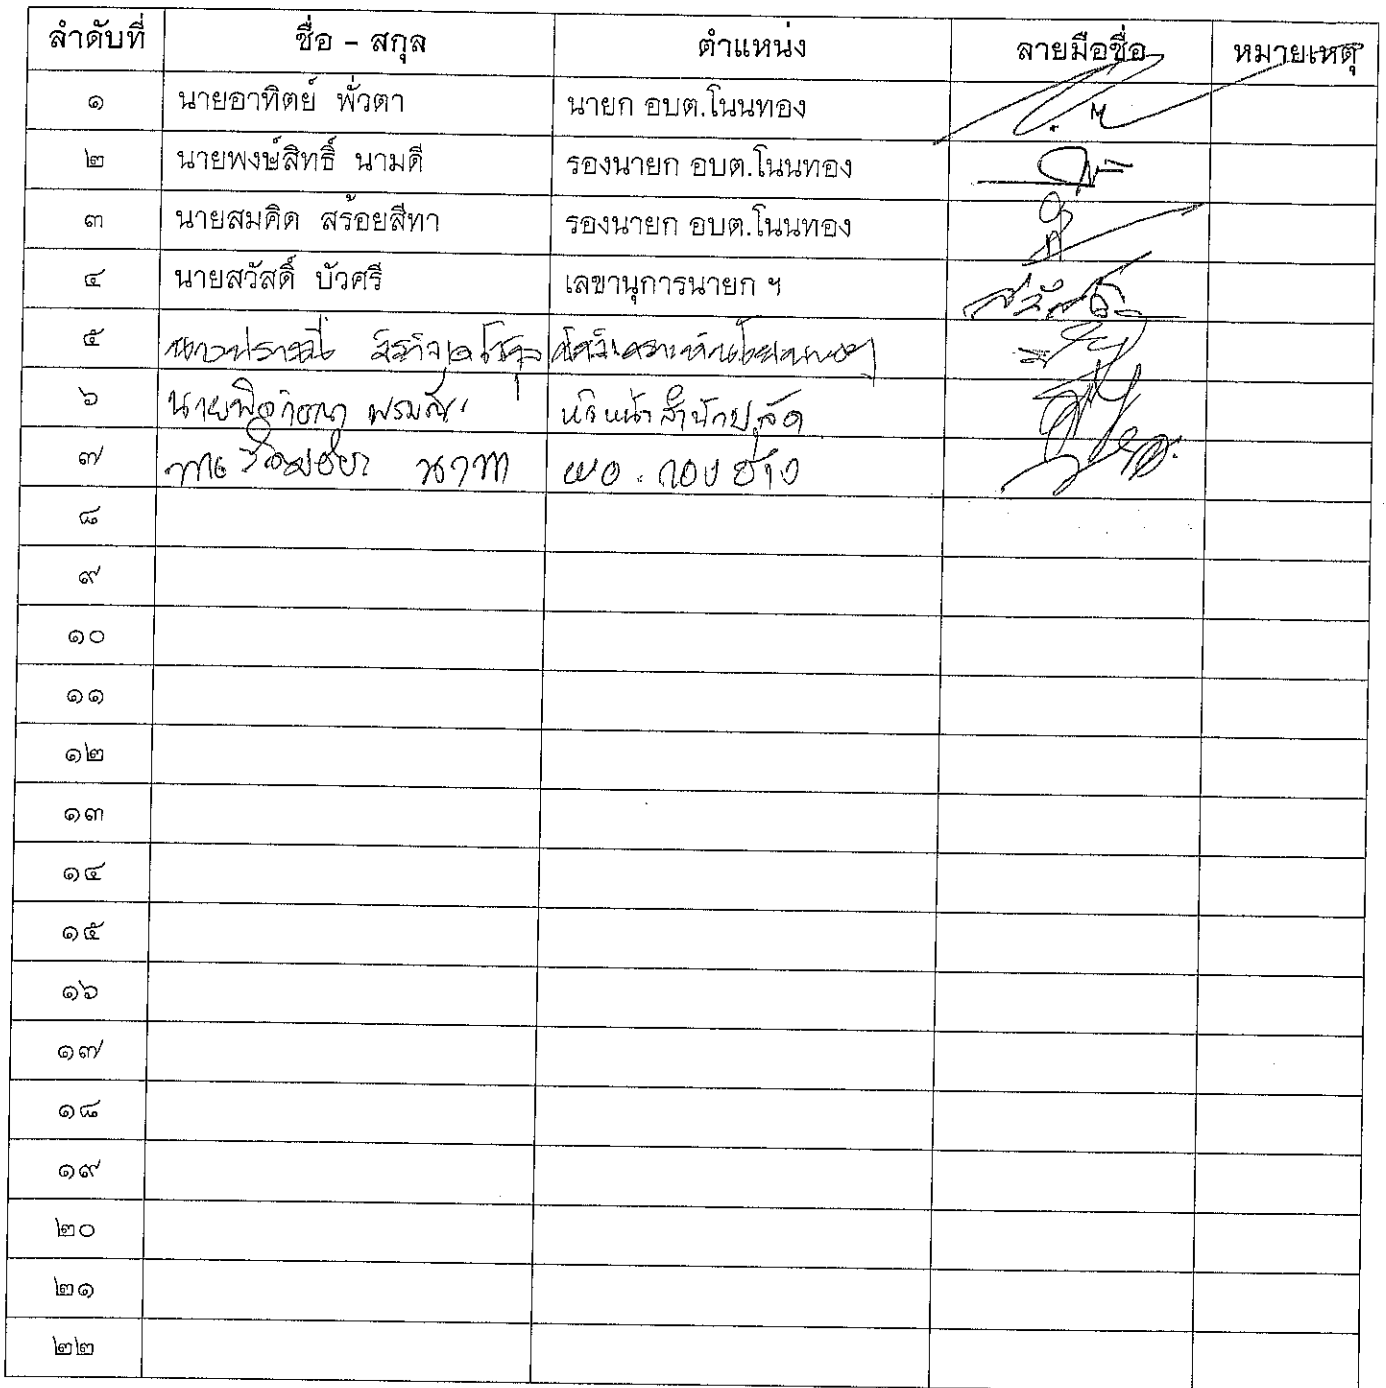 ลำดับที่ ชื่อ - สกุล ตำแหน่ง ลายมือชื่อ หมายเหตุ
๑ นายอาทิตย์ พั่วตา นายก อบต.โนนทอง
๒ นายพงษ์สิทธิ์ นามดี รองนายก อบต.โนนทอง
๓ นายสมคิด สร้อยสีทา รองนายก อบต.โนนทอง
๔ นายสวัสดิ์ บัวศรี เลขานุการนายก ฯ สวัสดิ์
๕
๖ หัวหน้าสำนักปลัด
๗ ผอ. กองช่าง
๘
๙
๑๐
๑๑
๑๒
๑๓
๑๔
๑๕
๑๖
๑๗
๑๘
๑๙
๒๐
๒๑
๒๒